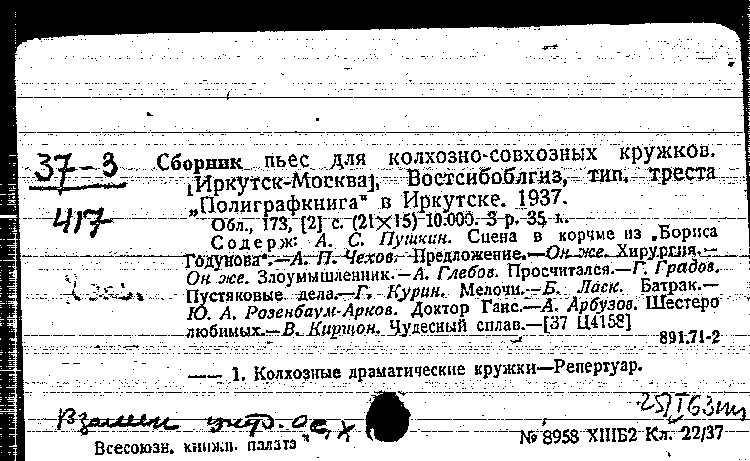 37-3
417
Сборник пьес для колхозно-совхозных кружков.
[Иркутск-Москва], Востсибоблгиз, тип. треста
„Полиграфкнига" в Иркутске. 1937.
Обл., 173, [2] с. (21×15) 10.000. 3 р. 35 к.
Содерж: А. С. Пушкин. Сцена в корчме из „Бориса
Годунова".—А. П. Чехов. Предложение.—Он же. Хирургия.—
Он же. Злоумышленник.—А. Глебов. Просчитался.—Г. Градов.
Пустяковые дела.—Г. Курин. Мелочи.—Б. Ласк. Батрак.—
Ю. А. Розенбаум-Арков. Доктор Ганс.—А. Арбузов. Шестеро
любимых.—В. Киршон. Чудесный сплав.—[37 Ц4158]
891.71-2
—— 1. Колхозные драматические кружки—Репертуар.
Взамен
Всесоюзн. книжн. палата
№ 8958 XIIIБ2 Кл. 22/37